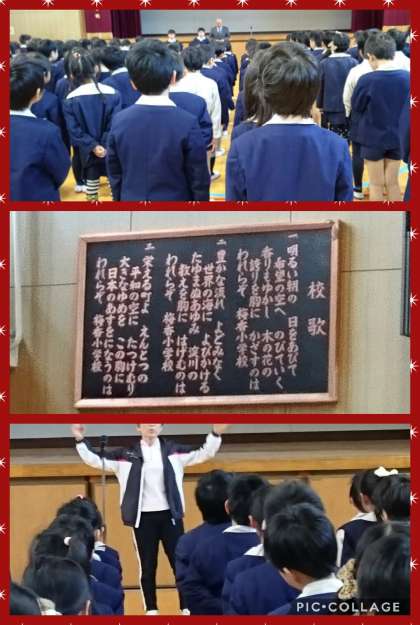 校歌
一 明るい朝の 日をあびて
希望の空へ のびていく
香りもゆかし 木の花の
誇りを胸に かざすのは
われらぞ 梅香小学校
二 豊かな流れ よどみなく
世界の海に よびかける
たゆまぬあゆみ 淀川の
教えを胸に はげむのは
われらぞ 梅香小学校
三 栄える町よ えんとつの
平和の空に たつけむり
大きなゆめを この胸に
日本のあすを になうのは
われらぞ 梅香小学校
PIC•COLLAGE